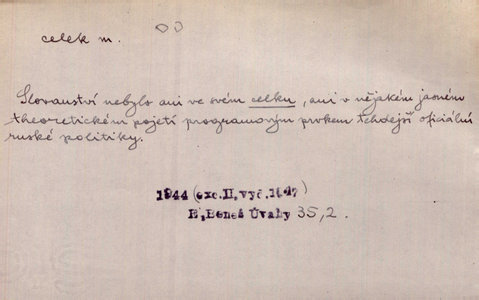 celek m.
Slovanství nebylo ani ve svém celku, ani v nějakém jasném
theoretickém pojetí programovým prvkem tehdejší oficiální
ruské politiky.
1944 (exc. II, vyč. 1947)
E. Beneš Úvahy 35, 2.